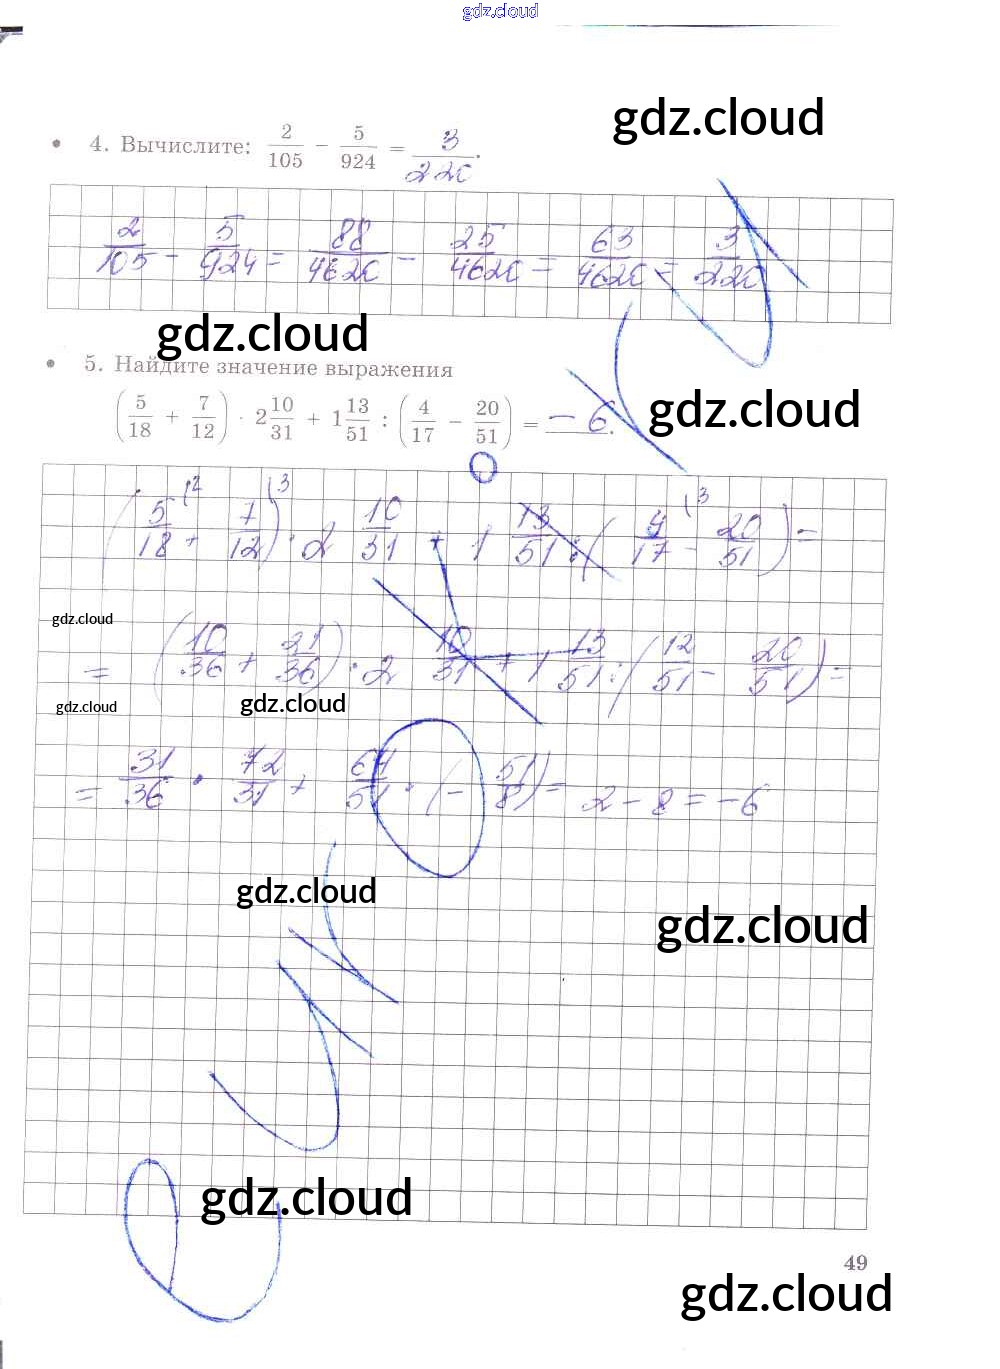 gdz.cloud
gdz.cloud
4. Вычислите: 2/105 − 5/924 = 3/220.
2/105 − 5/924 = 88/4620 − 25/4620 = 63/4620 = 3/220
gdz.cloud
5. Найдите значение выражения
gdz.cloud
(5/18 + 7/12) · 2 10/31 + 1 13/51 : (4/17 − 20/51) = −6.
(5/18 \2 + 7/12 \3) · 2 10/31 + 1 13/51 : (4/17 \3 − 20/51) =
gdz.cloud
= (10/36 + 21/36) · 2 10/31 + 1 13/51 : (12/51 − 20/51) =
gdz.cloud
gdz.cloud
= 31/36 · 72/31 + 64/51 · (− 51/8) = 2 − 8 = −6
gdz.cloud
gdz.cloud
gdz.cloud
49
gdz.cloud